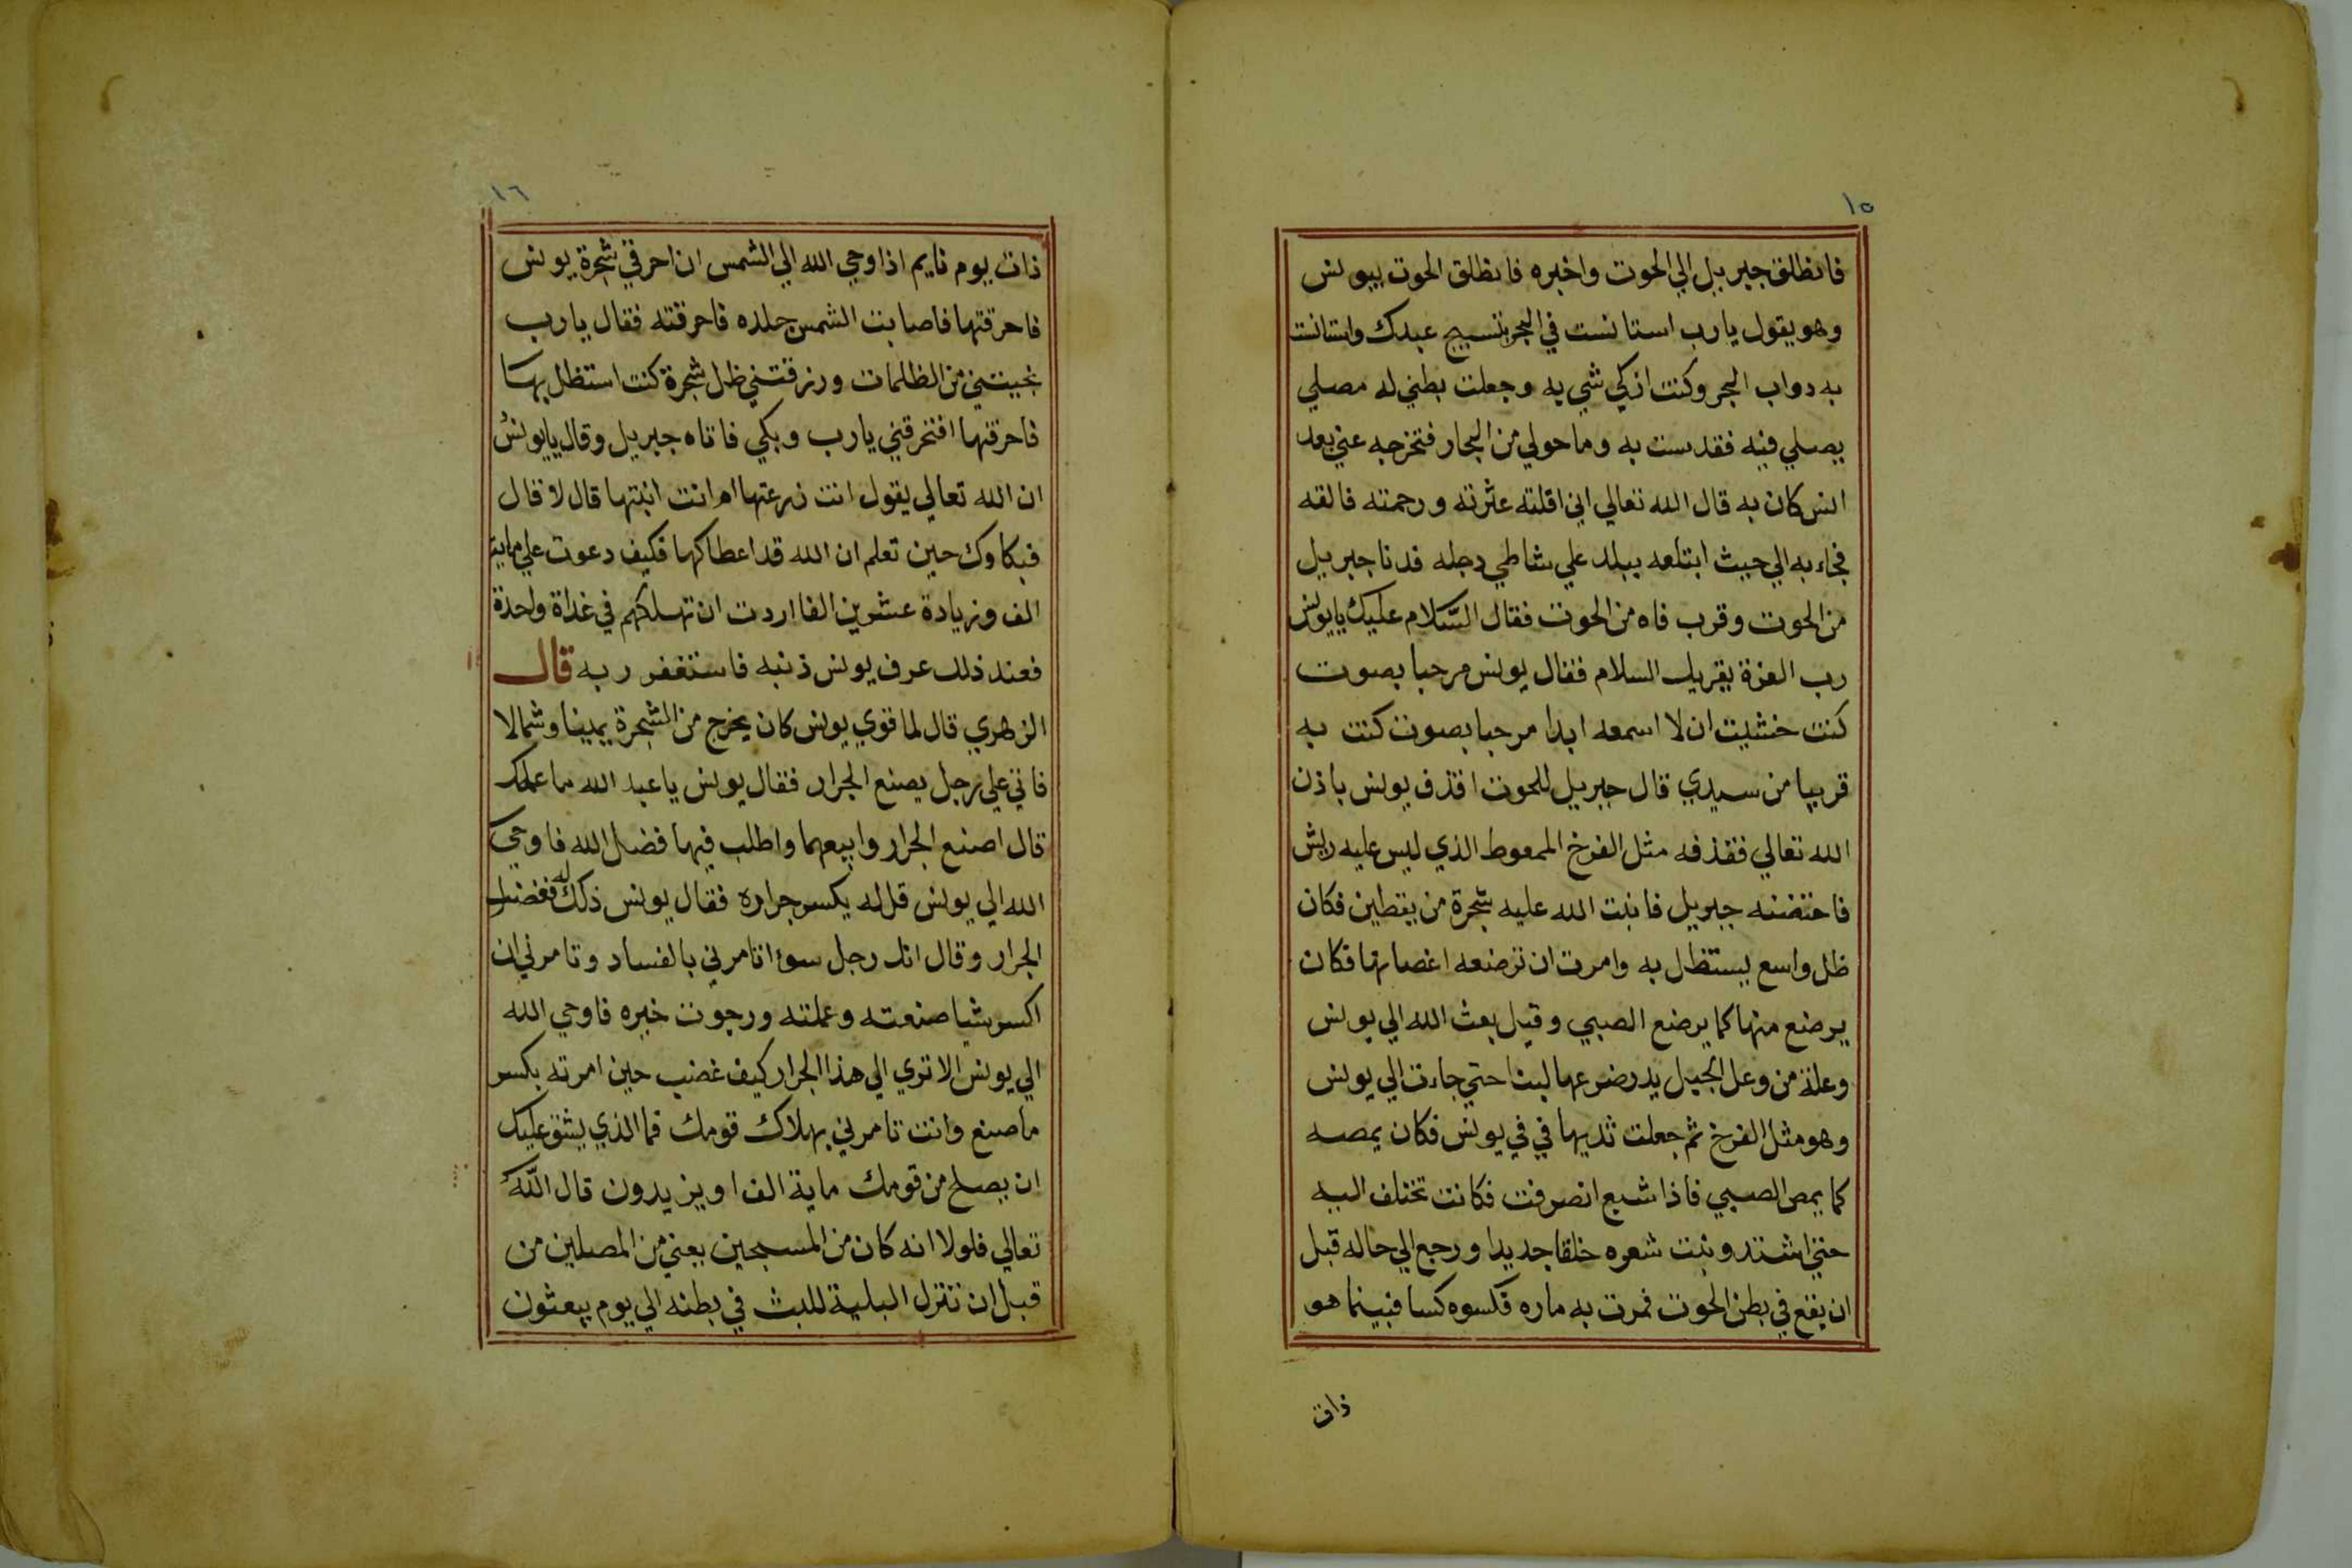 ١٥
فانطلق جبريل الي الحوت واخبره فانطلق الحوت بيونس
وهو يقول يارب استانست في البحر بتسبيح عبدك واستانست
به دواب البحر وكنت ازكي شي به وجعلت بطني له مصلي
يصلي فيه فقدست به وما حولي من البحار فتخرجه عني بعد
انس كان به قال الله تعالي اني اقلته عثرته ورحمته فالقه
فجاء به الي حيث ابتلعه ببلد علي شاطي دجله فدنا جبريل
من الحوت وقرب فاه من الحوت فقال السّلام عليك يا يونس
رب العزة يقريك السلام فقال يونس مرحبا بصوت
كنت خشيت ان لا اسمعه ابدا مرحبا بصوت كنت به
قريبا من سيدي قال جبريل للحوت اقذف يونس باذن
الله تعالي فقذفه مثل الفرخ الممعوط الذي ليس عليه ريش
فاحتضنه جبريل فانبت الله عليه شجرة من يقطين فكان
ظل واسع يستظل به وامرت ان ترضعه اغصانها فكان
يرضع منها كما يرضع الصبي وقيل بعث الله الي يونس
وعلة من وعل الجبل يدر ضرعها لبنا حتي جاءت الي يونس
وهو مثل الفرخ ثم جعلت ثديها في في يونس فكان يمصه
كما يمص الصبي فاذا شبع انصرفت فكانت تختلف اليه
حتي اشتد ونبت شعره خلقا جديدا ورجع الي حاله قبل
ان يقع في بطن الحوت فمرت به ماره فكسوه كسا فبينما هو
ذات
١٦
ذات يوم نايم اذ اوحي الله الي الشمس ان احرقي شجرة يونس
فاحرقتها فاصابت الشمس جلده فاحرقته فقال يارب
نجيتني من الظلمات ورزقتني ظل شجرة كنت استظل بها
فاحرقتها افتحرقني يارب وبكي فاتاه جبريل وقال يا يونس
ان الله تعالي يقول انت زرعتها ام انت انبتها قال لا قال
فبكاوك حين تعلم ان الله قد اعطاكها فكيف دعوت علي ماية
الف وزيادة عشرين الفا اردت ان تهلكهم في غداة واحدة
فعند ذلك عرف يونس ذنبه فاستغفر ربه قال
الزهري قال لما قوي يونس كان يخرج من الشجرة يمينا وشمالا
فاتي علي رجل يصنع الجرار فقال يونس يا عبد الله ما عملك
قال اصنع الجرار وابيعها واطلب فيها فضل الله فاوحي
الله الي يونس قل له يكسر جراره فقال يونس ذلك له فغضب
الجرار وقال انك رجل سوء اتامرني بالفساد وتامرني ان
اكسر شيا صنعته وعملته ورجوت خيره فاوحي الله
الي يونس الا تري الي هذا الجرار كيف غضب حين امرته بكسر
ما صنع وانت تامرني بهلاك قومك فما الذي يشق عليك
ان يصلح من قومك ماية الف او يزيدون قال اللّه
تعالي فلولا انه كان من المسبحين يعني من المصلين من
قبل ان تنزل البلية للبث في بطنه الي يوم يبعثون